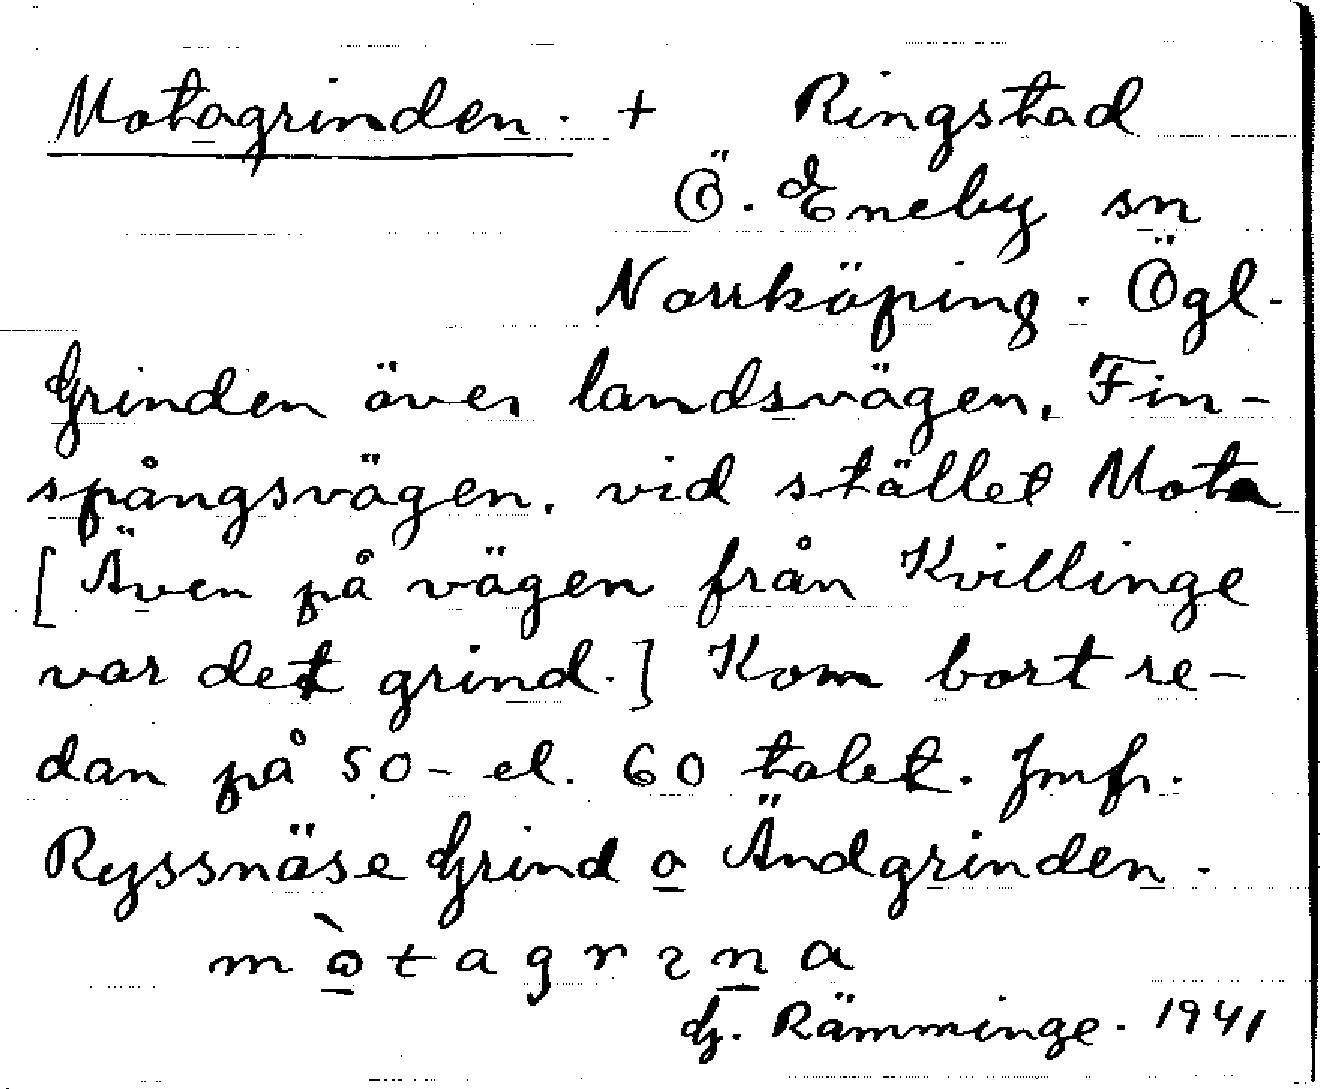 Motagrinden. + Ringstad
Ö. Eneby sn
Norrköping. Ögl.
Grinden över landsvägen, Fin-
spångsvägen, vid stället Mota
[Även på vägen från Kvillinge
var det grind.] Kom bort re-
dan på 50- el. 60 talet. Jmfr.
Ryssnäse Grind o Ändgrinden.
mò̱tagrɪṉa
G. Rämminge. 1941